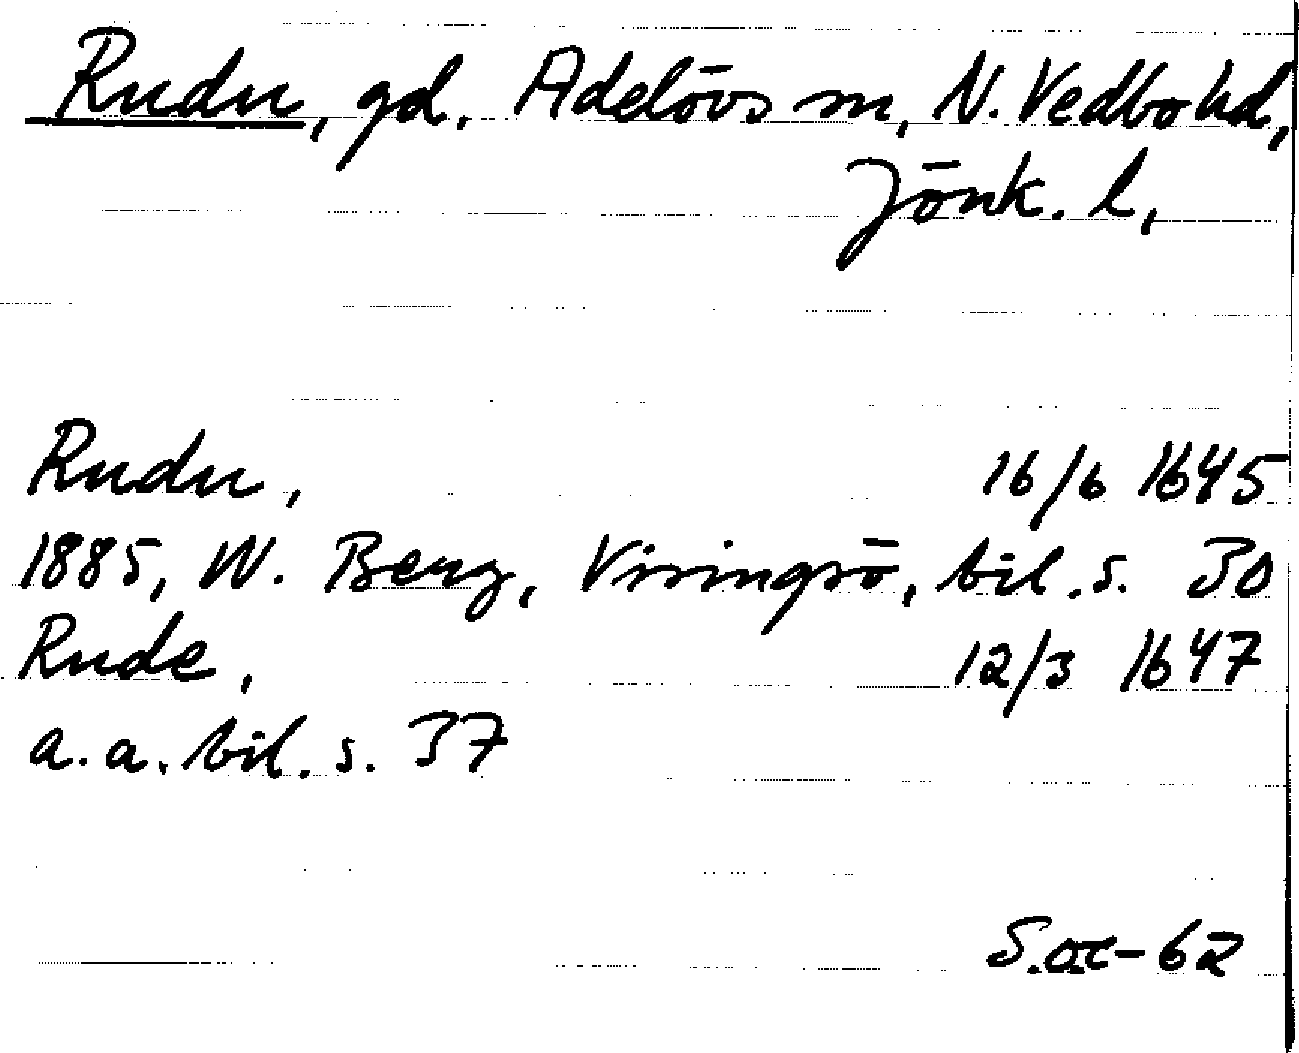 Rudu, gd, Adelövs sn, N. Vedbo hd,
Jönk. l,
Rudu, 16/6 1645
1885, W. Berg, Visingsö, bil. s. 30
Rude, 12/3 1647
a.a. bil. s. 37